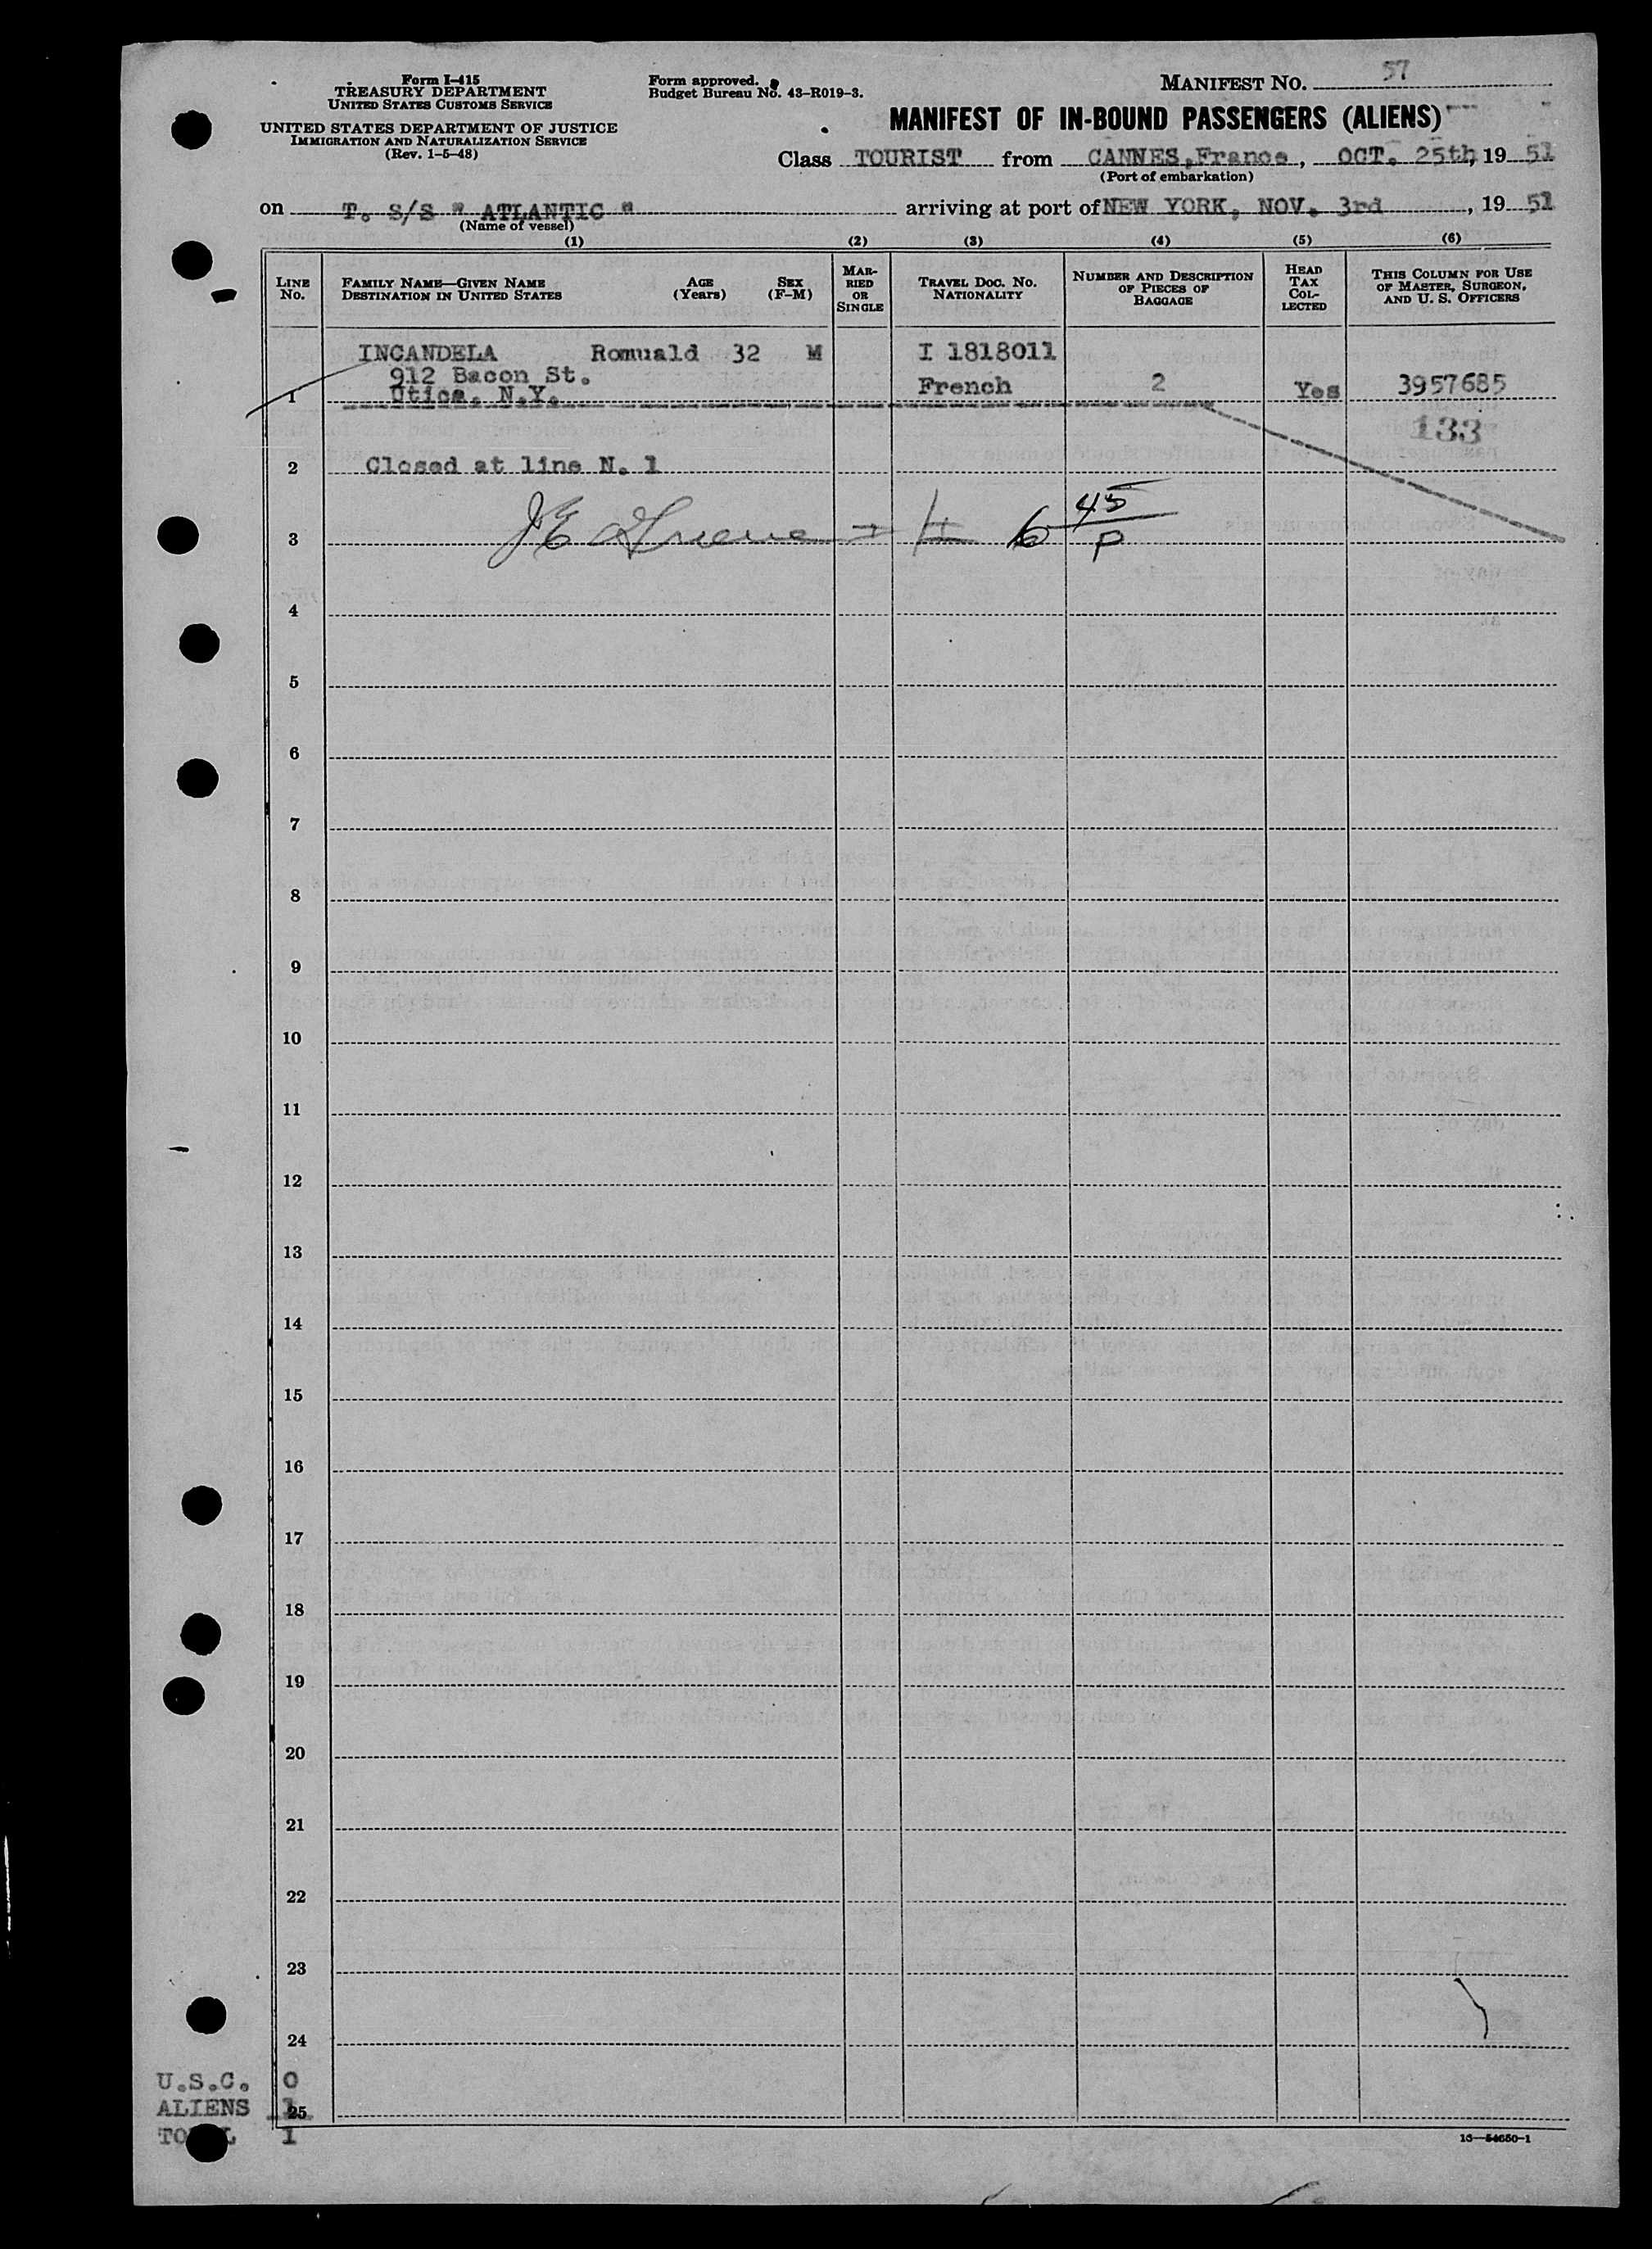 Form I-415
TREASURY DEPARTMENT
UNITED STATES CUSTOMS SERVICE
UNITED STATES DEPARTMENT OF JUSTICE
IMMIGRATION AND NATURALIZATION SERVICE
(Rev. 1-5-48)
Form approved.
Budget Bureau No. 43-R019-3.
MANIFEST NO. 57
MANIFEST OF IN-BOUND PASSENGERS (ALIENS)
Class TOURIST from CANNES,France, OCT. 25th, 19 51
(Port of embarkation)
on T. S/S " ATLANTIC " arriving at port of NEW YORK, NOV. 3rd, 19 51
(Name of vessel)
(1) (2) (3) (4) (5) (6)
LINE No. FAMILY NAME—GIVEN NAME DESTINATION IN UNITED STATES AGE (Years) SEX (F-M) MARRIED OR SINGLE TRAVEL DOC. NO. NATIONALITY NUMBER AND DESCRIPTION OF PIECES OF BAGGAGE HEAD TAX COLLECTED THIS COLUMN FOR USE OF MASTER, SURGEON, AND U. S. OFFICERS
INCANDELA Romuald 32 M I 1818011
912 Bacon St.
1 Utica, N.Y. French 2 Yes 3957685
133
2 Closed at line N. 1
3 6 45/P
4
5
6
7
8
9
10
11
12
13
14
15
16
17
18
19
20
21
22
23
24
U.S.C. 0
ALIENS 1 25
TOTAL 1
16—54650-1